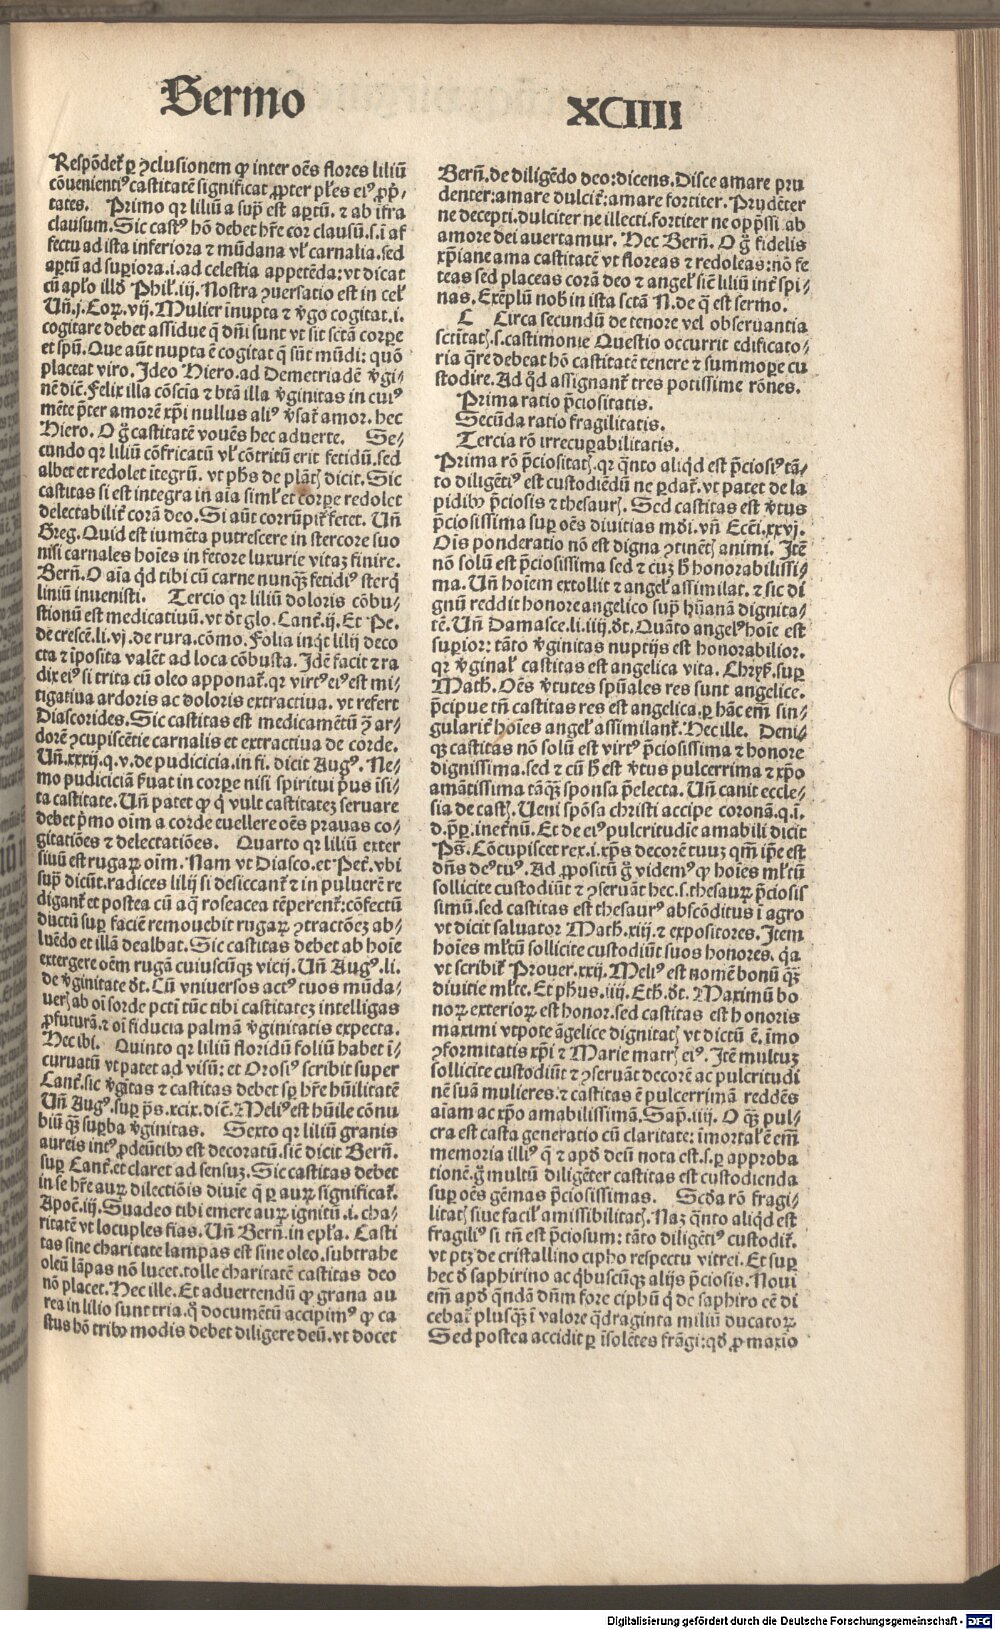 Sermo
XCIIII
Respōdet̉ ꝑ ꝯclusionem ꝙ inter oēs flores liliū
cōuenientiꝰ castitatē significat ꝓpter pl̉es eiꝰ ꝓp̉-
tates. Primo qꝛ liliū a sup̄ est aꝑtū. ⁊ ab īfra
clausum. Sic castꝰ hō debet hr̄e cor clausū. s. ī af
fectu ad ista inferiora ⁊ mūdana vl̉ carnalia. sed
aꝑtū ad suꝑiora. i. ad celestia appetēda: vt dicat
cū apl̉o illd̉ Phil̉. iij. Nostra ꝯuersatio est in cel̉
Uñ. j. Coꝝ. vij. Mulier īnupta ⁊ v̉go cogitat. i.
cogitare debet assidue q̄ dn̄i sunt vt sit sctā corꝑe
et spū. Que aūt nupta ē cogitat q̄ sūt mūdi: quō
placeat viro. Ideo Hiero. ad Demetriadē v̉gi-
nē dic̄. Felix illa cōscīa ⁊ btā illa v̉ginitas in cuiꝰ
mēte p̄ter amorē xp̄i nullus aliꝰ v̉sat̉ amor. hec
Hiero. O g̊ castitatē vouēs hec aduerte. Se-
cundo qꝛ liliū cōfricatū vl̉ cōtritū erit fetidū. sed
albet et redolet ītegrū. vt ph̄s de plāt̉ dicit. Sic
castitas si est integra in aīa siml̉ et corꝑe redolet
delectabilit̉ corā deo. Si aūt corrūpit̉ fetet. Uñ
Greg. Quid est iumēta putrescere in stercore suo
nisi carnales hoīes in fetore luxurie vitaꝫ finire.
Bern̄. O aīa qd̉ tibi cū carne nunqꝫ̄ fetidiꝰ sterq̉
liniū inuenisti. Tercio qꝛ liliū doloris cōbu-
stionū est medicatiuū. vt dt̉ glo. Cant̉. ij. Et Pe.
de crescē. li. vj. de rura. cōmo. Folia inqt̉ lilij deco
cta ⁊ īposita valēt ad loca cōbusta. Idē facit ⁊ ra
dix eiꝰ si trita cū oleo apponat̉. qꝛ virtꝰ eiꝰ est mi-
tigatiua ardoris ac doloris extractiua. vt refert
Diascorides. Sic castitas est medicamētū ꝯ ar-
dorē ꝯcupiscētie carnalis et extractiua de corde.
Uñ. xxxij. q. v. de pudicicia. in fi. dicit Augꝰ. Ne-
mo pudiciciā s̉uat in corꝑe nisi spiritui p̉us īsi-
ta castitate. Uñ patet ꝙ q̉ vult castitateꝫ seruare
debet p̉mo oīm a corde euellere oēs prauas co-
gitatiōes ⁊ delectatiōes. Quarto qꝛ liliū exter
siuū est rugaꝝ oīm. Nam vt Diasco. et Pet̉. vbi
sup̄ dicūt. radices lilij si desiccant̉ ⁊ in puluerē re
digant̉ et postea cū aq̄ roseacea tēperent̉: cōfectū
ductū suꝑ faciē remouebit rugaꝝ ꝯtractōeꝫ ab-
luēdo et illā dealbat. Sic castitas debet ab hoīe
extergere oēm rugā cuiuscūqꝫ vicij. Uñ Augꝰ. li.
de v̉ginitate dt̉. Cū vniuersos actꝰ tuos mūda-
uer̉ ab oī sorde pctī tūc tibi castitateꝫ intelligas
ꝓfuturā. ⁊ oī fiducia palmā v̉ginitatis expecta.
Hec ibi. Quinto qꝛ liliū floridū foliū habet ī-
curuatū vt patet ad visū: et Orosiꝰ scribit super
Cant̉. sic v̉gītas ⁊ castitas debet sꝑ hr̄e hūilitatē
Uñ Augꝰ. suꝑ ps̄. xcix. dic̄. Meliꝰ est hūile cōnu
biū qꝫ̄ suꝑba v̉ginitas. Sexto qꝛ liliū granis
aureis intꝰ ꝓdeūtibꝰ est decoratū. sic̄ dicit Bern̄.
suꝑ Cant̉. et claret ad sensuꝫ. Sic castitas debet
in se hr̄e auꝝ dilectiōis diuīe q̄ ꝑ auꝝ significat̉.
Apoc̄. iij. Suadeo tibi emere auꝝ ignitū. i. cha-
ritatē vt locuples fias. Uñ Bern̄. in epl̄a. Casti
tas sine charitate lampas est sine oleo. subtrahe
oleū lāpas nō lucet. tolle charitatē castitas deo
nō placet. Hec ille. Et aduertendū ꝙ grana au
rea in lilio sunt tria. q̊ documētū accipimꝰ ꝙ ca
stus hō tribꝰ modis debet diligere deū. vt docet
Bern̄. de diligēdo deo: dicens. Disce amare pru
denter: amare dulcit̉: amare fortiter. Prudēter
ne decepti. dulciter ne illecti. fortiter ne opp̄ssi ab
amore dei auertamur. Hec Bern̄. O g̊ fidelis
xp̄iane ama castitatē vt floreas ⁊ redoleas: nō fe
teas sed placeas corā deo ⁊ angel̉ sic̄ liliū int̉ spi-
nas. Exēplū nob̉ in ista sctā N. de q̄ est sermo.
C Circa secundū de tenore vel obseruantia
sctītat̉. s. castimonie Questio occurrit edificato-
ria q̄re debeat hō castitatē tenere ⁊ summoꝑe cu
stodire. Ad qd̉ assignant̉ tres potissime rōnes.
Prima ratio p̄ciositatis.
Secūda ratio fragilitatis.
Tercia rō irrecuꝑabilitatis.
Prima rō p̄ciositat̉. qꝛ qn̄to aliqd̉ est p̄ciosiꝰ tā-
to diligētiꝰ est custodiēdū ne ꝑdat̉. vt patet de la
pidibꝰ p̄ciosis ⁊ thesaur̉. Sed castitas est v̉tus
p̄ciosissima suꝑ oēs diuitias mūdi. vñ Ecc̄i. xxvj.
Oīs ponderatio nō est digna ꝯtinēt̉ animi. Itē
nō solū est p̄ciosissima sed ⁊ cuꝫ h̉ honorabilissi-
ma. Uñ hoīem extollit ⁊ angel̉ assimilat. ⁊ sic di
gnū reddit honore angelico sup̄ hūanā dignita-
tē. Uñ Damasce. li. iiij. dt̉. Quāto angelꝰ hoīe est
suꝑior: tāto v̉ginitas nuptijs est honorabilior.
qꝛ v̉ginal̉ castitas est angelica vita. Chryꝭ. suꝑ
Math̉. Oēs v̉tutes spūales res sunt angelice.
p̄cipue tn̄ castitas res est angelica. ꝑ hāc em̄ sin-
gularit̉ hoīes angel̉ assimilant̉. Hec ille. Deni-
qꝫ castitas nō solū est virtꝰ p̄ciosissima ⁊ honore
dignissima. sed ⁊ cū h̉ est v̉tus pulcerrima ⁊ xp̄o
amātissima tāqꝫ̄ sponsa p̄electa. Uñ canit eccle-
sia de cast̉. Ueni spōsa christi accipe coronā. q. t.
d. p̄ꝑ. inet̉nū. Et de eiꝰ pulcritudīe amabili dicit
Ps̄. Cōcupiscet rex. i. xp̄s decorē tuuꝫ qm̄ ip̄e est
dn̄s deꝰ tuꝰ. Ad ꝓpositū g̊ videmꝰ ꝙ hoīes ml̉tū
sollicite custodiūt ⁊ ꝯseruāt hec. s. thesauꝝ p̄ciosis
simū. sed castitas est thesaurꝰ abscōditus ī agro
vt dicit saluator Math̉. xiij. ⁊ expositores. Item
hoīes ml̉tū sollicite custodiūt suos honores. q̄a
vt scribit̉ Prouer. xxij. Meliꝰ est nomē bonū qꝫ̄
diuitie ml̉te. Et ph̄us. iiij. Eth̉. dt̉. Maximū bo
noꝝ exterioꝝ est honor. sed castitas est honoris
maximi vtpote āgelice dignitat̉ vt dictū ē. īmo
ꝯformitatis xp̄i ⁊ Marie matr̉ eiꝰ. Itē multuꝫ
sollicite custodiūt ⁊ ꝯseruāt decorē ac pulcritudi
nē suā mulieres. ⁊ castitas ē pulcerrimā reddēs
aīam ac xp̄o amabilissimā. Sap̄. iiij. O qꝫ̄ pul-
cra est casta generatio cū claritate: īmortal̉ ē em̄
memoria illiꝰ q̄ ⁊ apd̉ deū nota est. s. ꝑ approba
tionē. g̊ multū diligēter castitas est custodienda
suꝑ oēs gēmas p̄ciosissimas. Scd̉a rō fragi-
litat̉ siue facil̉ amissibilitat̉. Naꝫ qn̄to aliqd̉ est
fragiliꝰ si tn̄ est p̄ciosum: tāto diligētiꝰ custodit̉.
vt ptꝫ de cristallino cipho respectu vitrei. Et suꝑ
hec d̉ saphirino ac qb̉uscūqꝫ alijs p̄ciosis. Noui
em̄ apd̉ qn̄dā dn̄m fore ciphū q̉ de saphiro eē di
cebat̉ plusqꝫ̄ ī valore qd̄raginta miliū ducatoꝝ
Sed postea accidit ꝑ īsolētes frāgi: qd̉ ꝓ maxīo
Digitalisierung gefördert durch die Deutsche Forschungsgemeinschaft - DFG